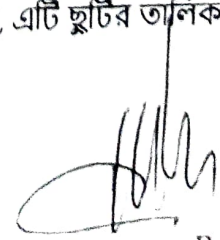 , এটি ছুটির তালিক